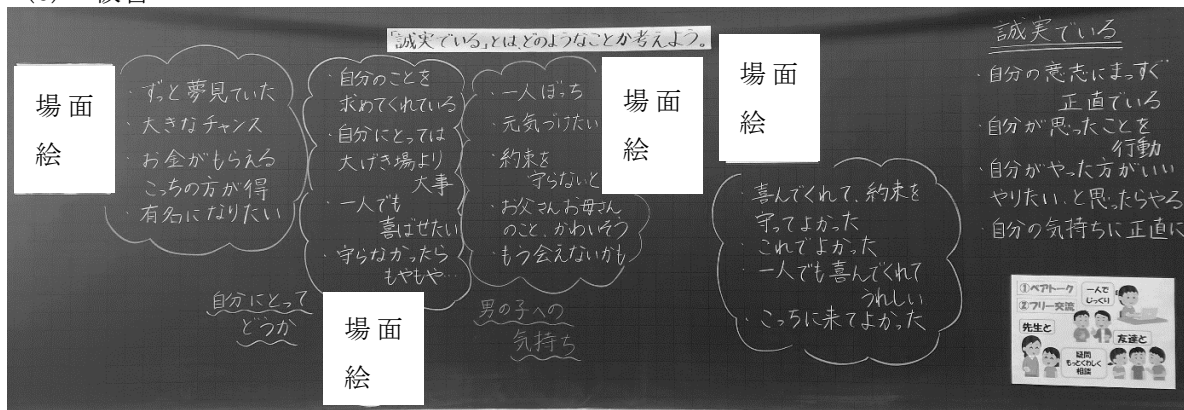 「誠実でいる」とは、どのようなことか考えよう。
場面
絵
・ずっと夢見ていた
・大きなチャンス
・お金がもらえる
こっちの方が得
・有名になりたい
・自分のことを
求めてくれている
・自分にとっては
大げき場より
大事
・一人でも
喜ばせたい
・守らなかったら
もやもや…
自分にとって
どうか
場面
絵
・一人ぼっち
・元気づけたい
・約束を
守らないと
・お父さんお母さん
のこと、かわいそう
・もう会えないかも
男の子への
気持ち
場面
絵
場面
絵
・喜んでくれて、約束を
守ってよかった
・これでよかった
・一人でも喜んでくれて
うれしい
・こっちに来てよかった
誠実でいる
・自分の意志にまっすぐ
正直でいる
・自分が思ったことを
行動
・自分がやった方がいい
やりたい、と思ったらやる
・自分の気持ちに正直に
①ペアトーク
②フリー交流
一人で
じっくり
先生と
友達と
疑問
もっとくわしく
相談